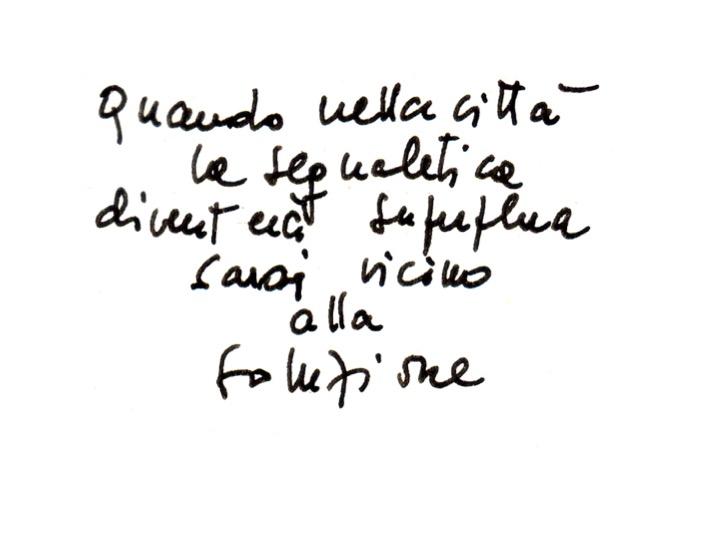 Quando nella città
la segnaletica
diventerà superflua
sarai vicino
alla
soluzione